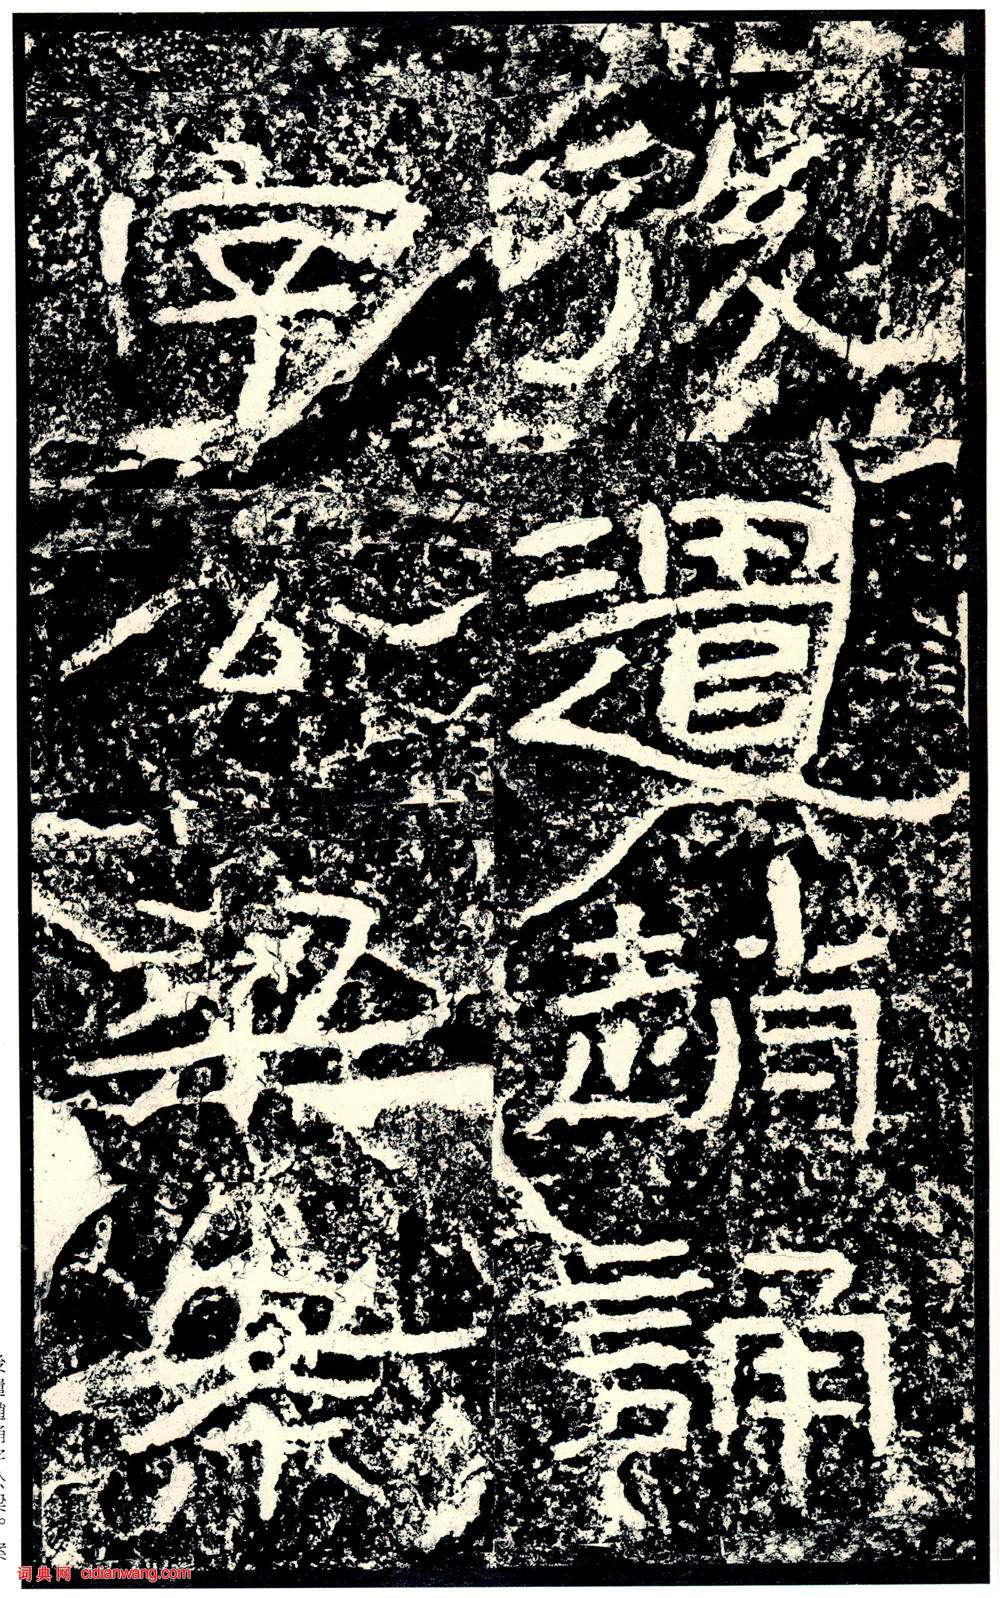 後遣趙誦
字公梁案
词典网 cidianwang.com